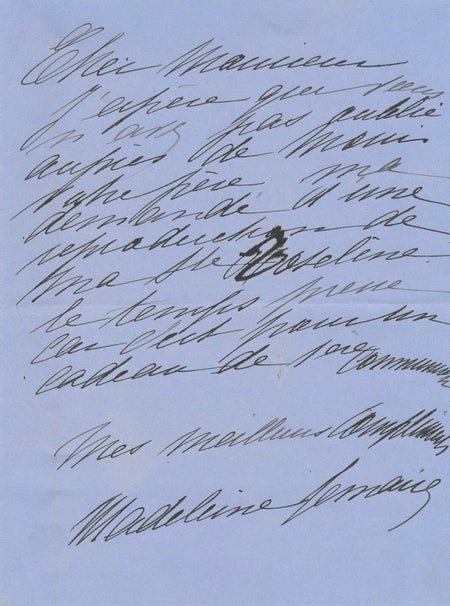 Cher Monsieur
J'espère que vous
n'avez pas oublié
auprès de Monsr
votre frère, ma
demande d'une
reproduction de
ma Ste Roseline.
le temps presse
car c'est pour un
cadeau de 1ère Communion
Mes meilleurs Compliments
Madeleine Lemaire